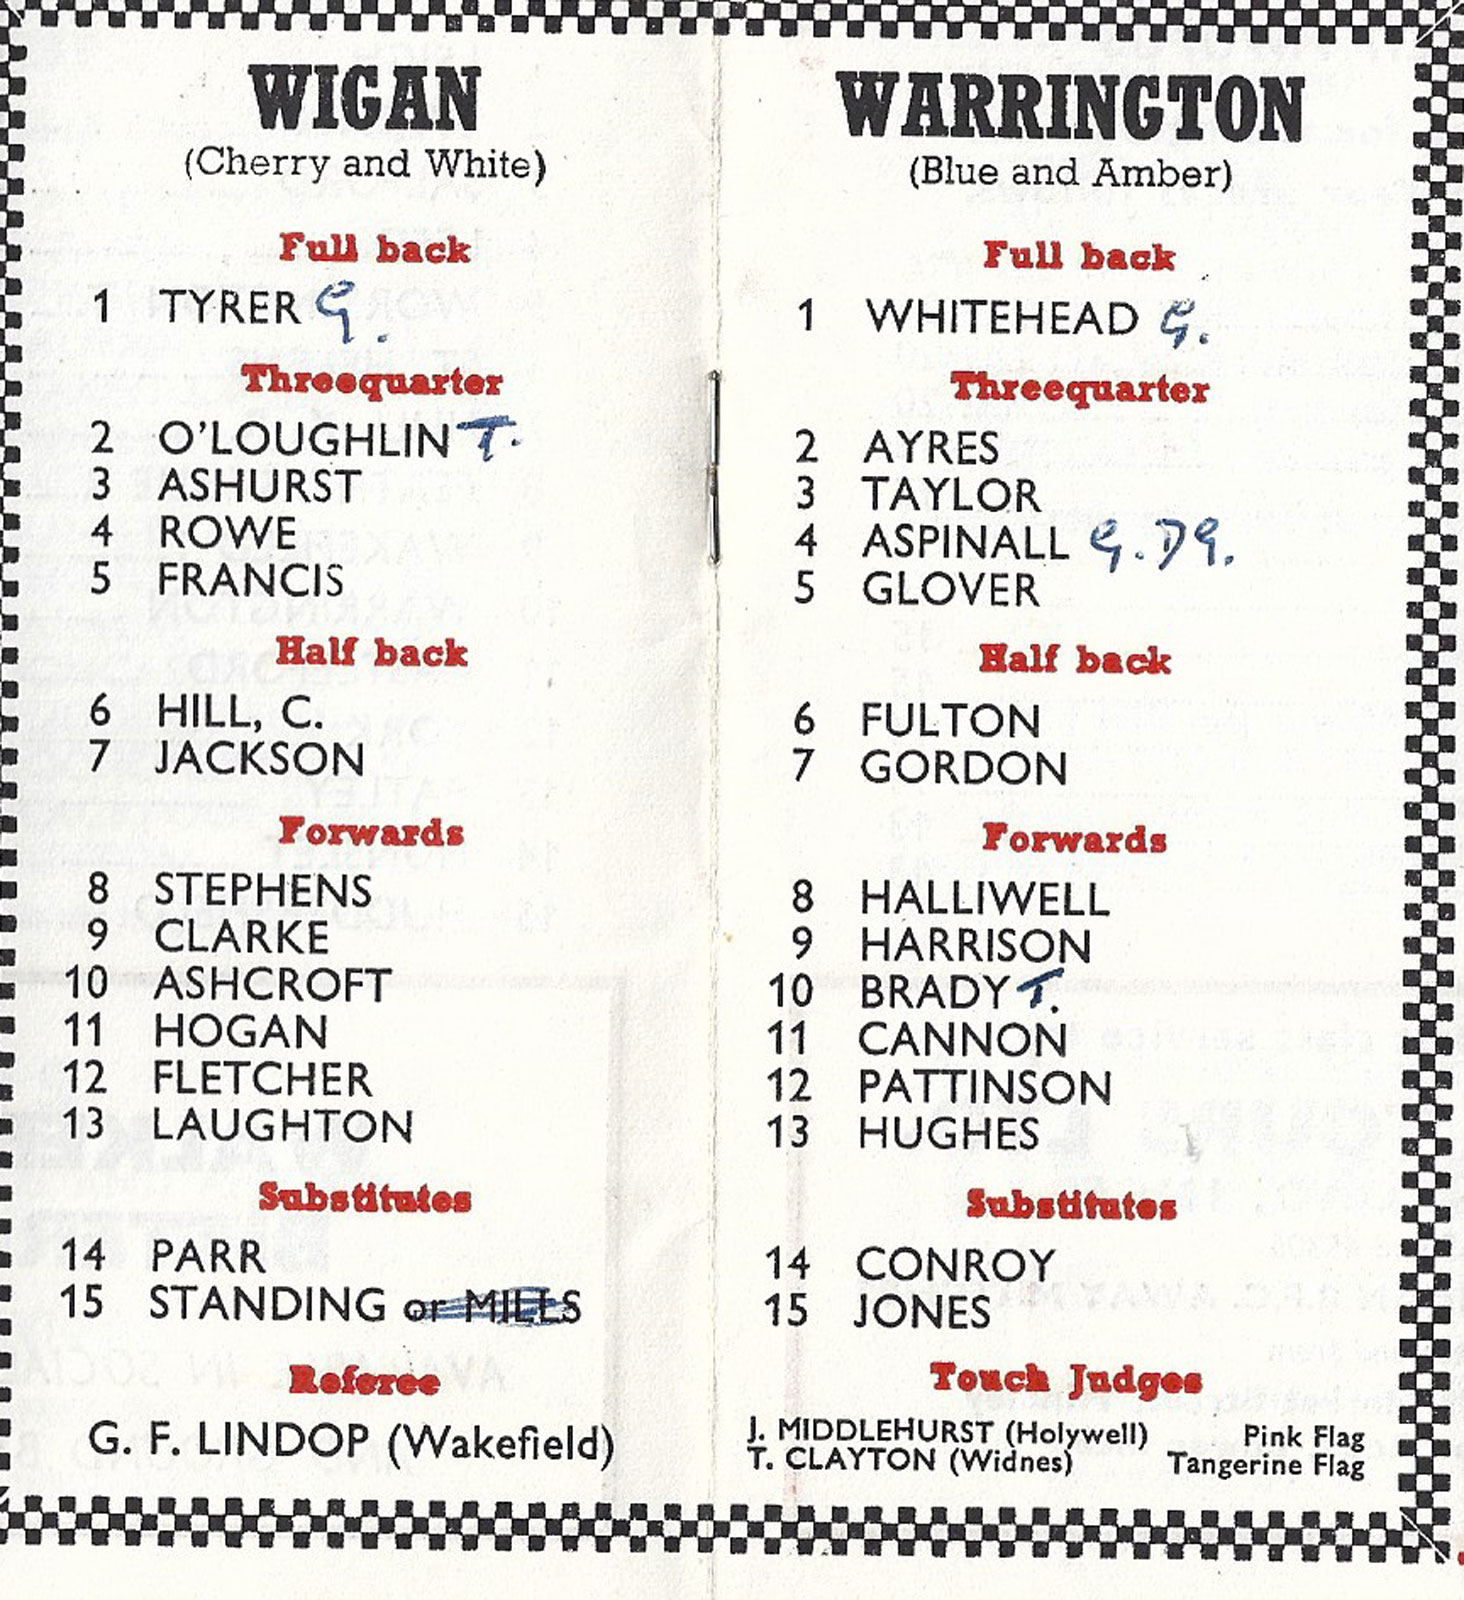 WIGAN
(Cherry and White)
Full back
1 TYRER G.
Threequarter
2 O'LOUGHLIN T.
3 ASHURST
4 ROWE
5 FRANCIS
Half back
6 HILL, C.
7 JACKSON
Forwards
8 STEPHENS
9 CLARKE
10 ASHCROFT
11 HOGAN
12 FLETCHER
13 LAUGHTON
Substitutes
14 PARR
15 STANDING or MILLS
Referee
G. F. LINDOP (Wakefield)
WARRINGTON
(Blue and Amber)
Full back
1 WHITEHEAD G.
Threequarter
2 AYRES
3 TAYLOR
4 ASPINALL G. DG.
5 GLOVER
Half back
6 FULTON
7 GORDON
Forwards
8 HALLIWELL
9 HARRISON
10 BRADY T.
11 CANNON
12 PATTINSON
13 HUGHES
Substitutes
14 CONROY
15 JONES
Touch Judges
J. MIDDLEHURST (Holywell) Pink Flag
T. CLAYTON (Widnes) Tangerine Flag